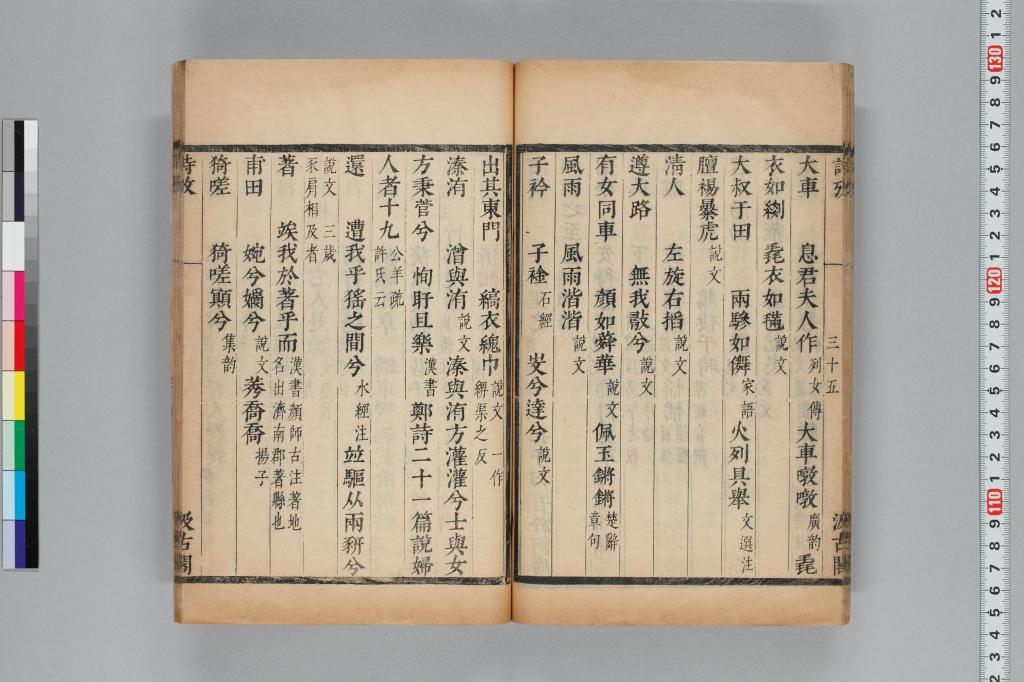 三十五
大車 息君夫人作 列女傳 大車噋噋 廣韵 毳
衣如緅 毳衣如㲯 說文
大叔于田 兩驂如儛 家語 火列具舉 文選注
膻裼暴虎 說文
淸人 左旋右搯 說文
遵大路 無我䜴兮 說文
有女同車 顏如蕣華 說文 佩玉鏘鏘 楚辭章句
風雨 風雨湝湝 說文
子衿 子䘳 石經 㞮兮達兮 說文
出其東門 縞衣綥巾 說文 一作綥渠之反
溱洧 潧與洧 說文 溱與洧方灌灌兮士與女
方秉菅兮 恂盱且樂 漢書 鄭詩二十一篇說婦
人者十九 公羊疏許氏云
還 遭我乎猺之間兮 水經注 竝驅从兩豜兮
說文 三歲豕肩相及者
著 竢我於著乎而 漢書顏師古注著地名出濟南郡著縣也
甫田 婉兮嬺兮 說文 莠喬喬 揚子
猗嗟 猗嗟顚兮 集韵
詩攷
汲古閣